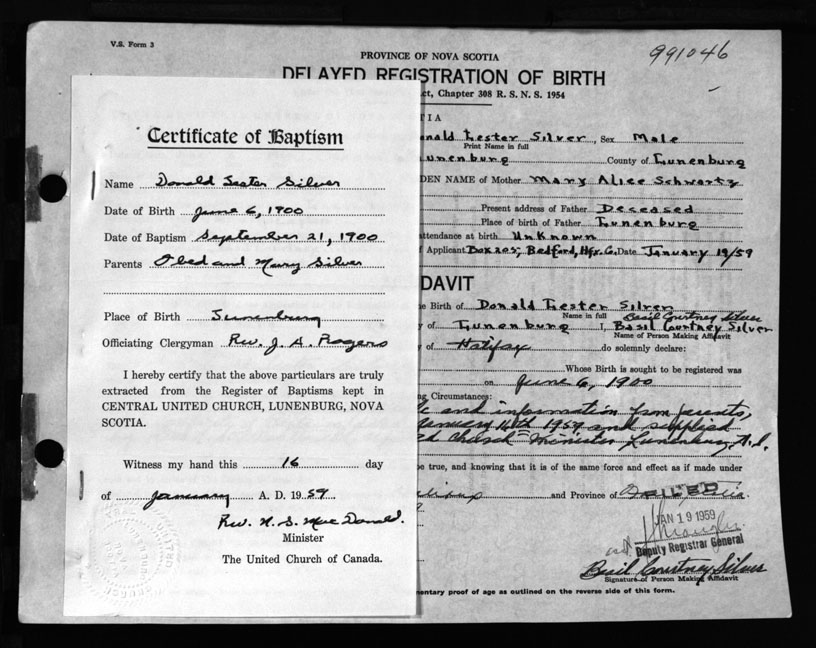 V.S. Form 3
991046
PROVINCE OF NOVA SCOTIA
DELAYED REGISTRATION OF BIRTH
ct, Chapter 308 R. S. N. S. 1954
TIA
onald Lester Silver, Sex Male
Print Name in full
Lunenburg County of Lunenburg
DEN NAME of Mother Mary Alice Schwartz
Present address of Father Deceased
Place of birth of Father Lunenburg
attendance at birth Unknown
f Applicant Box 205, Bedford, Hfx. Co. Date January 19/59
DAVIT
e Birth of Donald Lester Silver
Name in full Basil Courtney Silver
y of Lunenburg I, Basil Courtney Silver
Name of Person Making Affidavit
y of Halifax do solemnly declare:
Whose Birth is sought to be registered was
on June 6, 1900
ng Circumstances:
and information from parents,
January 16th 1959 and supplied
ed Church Minister Lunenburg N.S.
be true, and knowing that it is of the same force and effect as if made under
and Province of
FILED
JAN 19 1959
Deputy Registrar General
Basil Courtney Silver
Signature of Person Making Affidavit
mentary proof of age as outlined on the reverse side of this form.
Certificate of Baptism
Name Donald Lester Silver
Date of Birth June 6, 1900
Date of Baptism September 21, 1900
Parents Obed and Mary Silver
Place of Birth Lunenburg
Officiating Clergyman Rev. J. A. Rogers
I hereby certify that the above particulars are truly
extracted from the Register of Baptisms kept in
CENTRAL UNITED CHURCH, LUNENBURG, NOVA
SCOTIA.
Witness my hand this 16 day
of January A. D. 1959.
Rev. H. S. MacDonald.
Minister
The United Church of Canada.